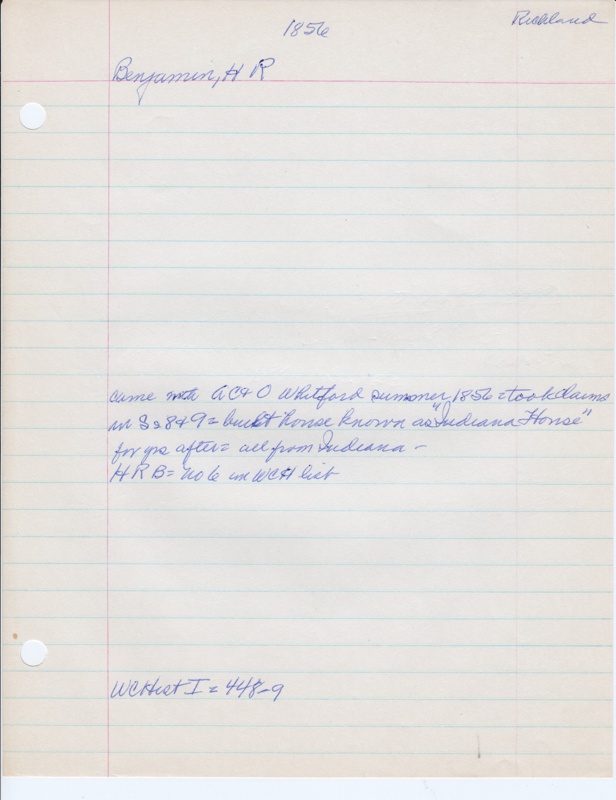 1856
Richland
Benjamin, H R
came with AC & O Whitford summer 1856 = took claims
in Ss 8 & 9 = built house known as "Indiana House"
for yrs after = all from Indiana -
HRB = No 6 in WCH list
WCHist I = 448-9